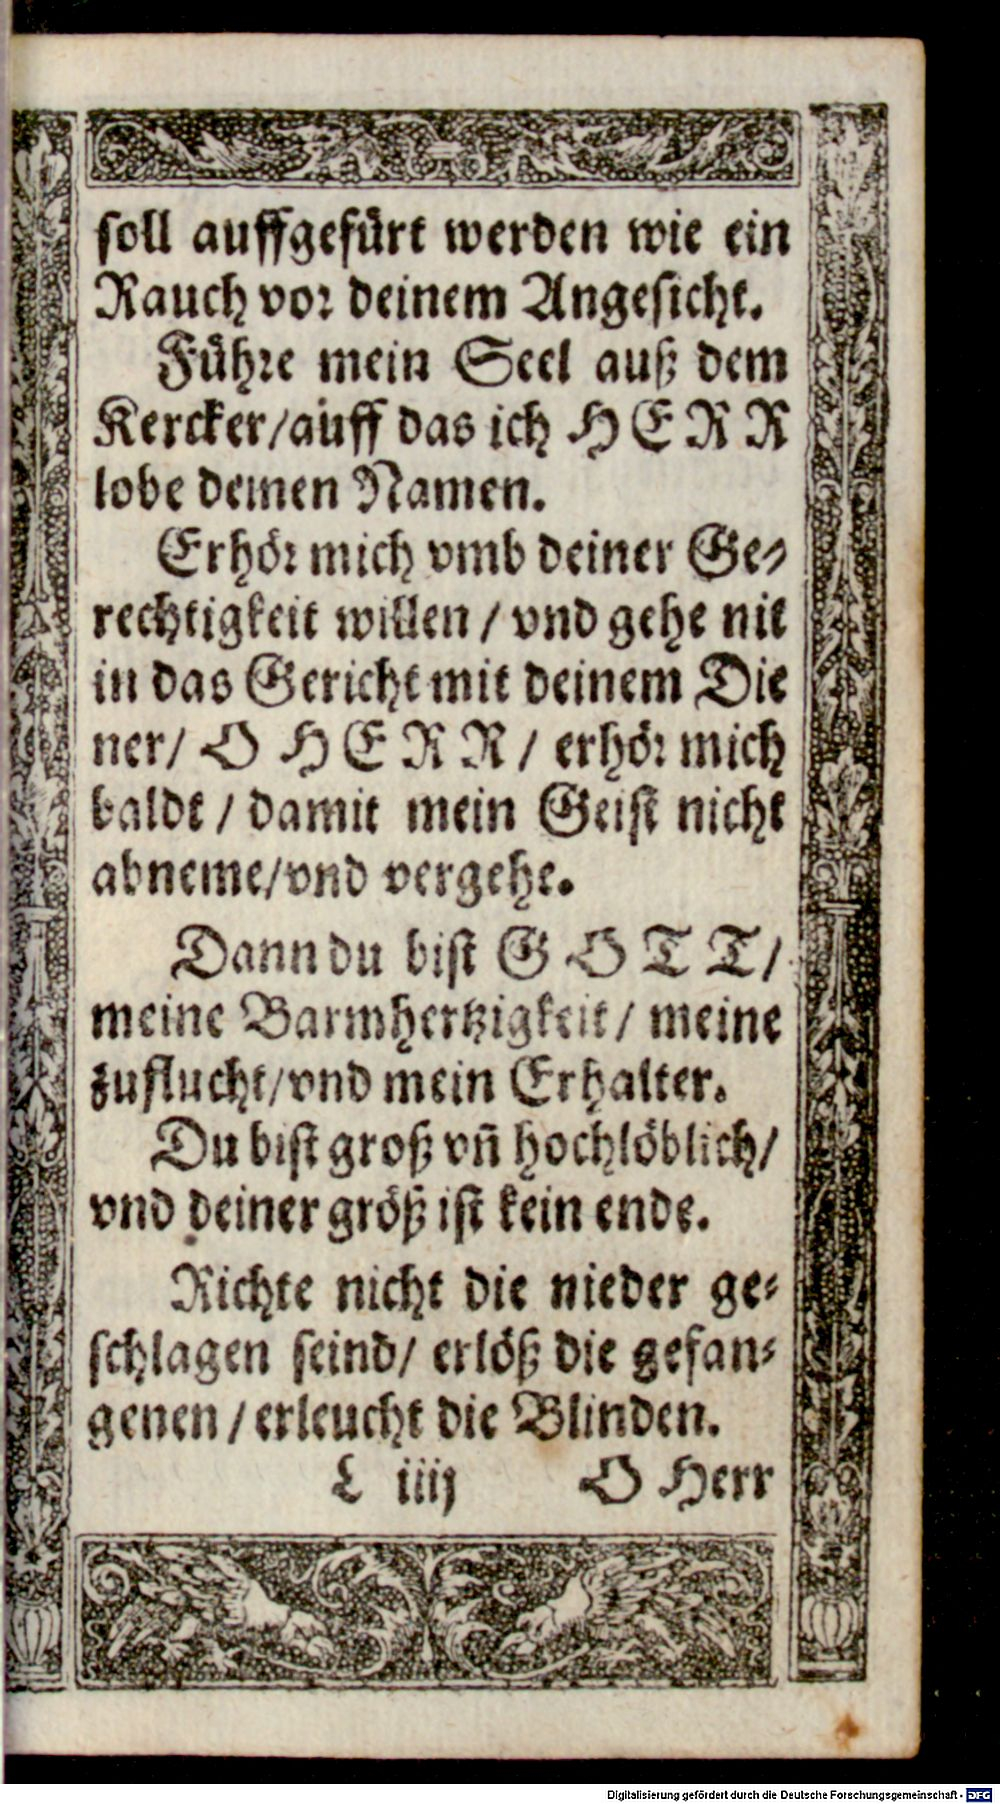 soll auffgefürt werden wie ein
Rauch vor deinem Angesicht.
Führe mein Seel auß dem
Kercker/auff das ich HERR
lobe deinen Namen.
Erhör mich vmb deiner Ge-
rechtigkeit willen / vnd gehe nit
in das Gericht mit deinem Die
ner/ O HERR / erhör mich
baldt / damit mein Geist nicht
abneme/vnd vergehe.
Dann du bist GOTT/
meine Barmhertzigkeit / meine
zuflucht/vnd mein Erhalter.
Du bist groß vñ hochlöblich/
vnd deiner größ ist kein ende.
Richte nicht die nieder ge-
schlagen seind/ erlöß die gefan-
genen / erleucht die Blinden.
L iiij O Herr
Digitalisierung gefördert durch die Deutsche Forschungsgemeinschaft - DFG